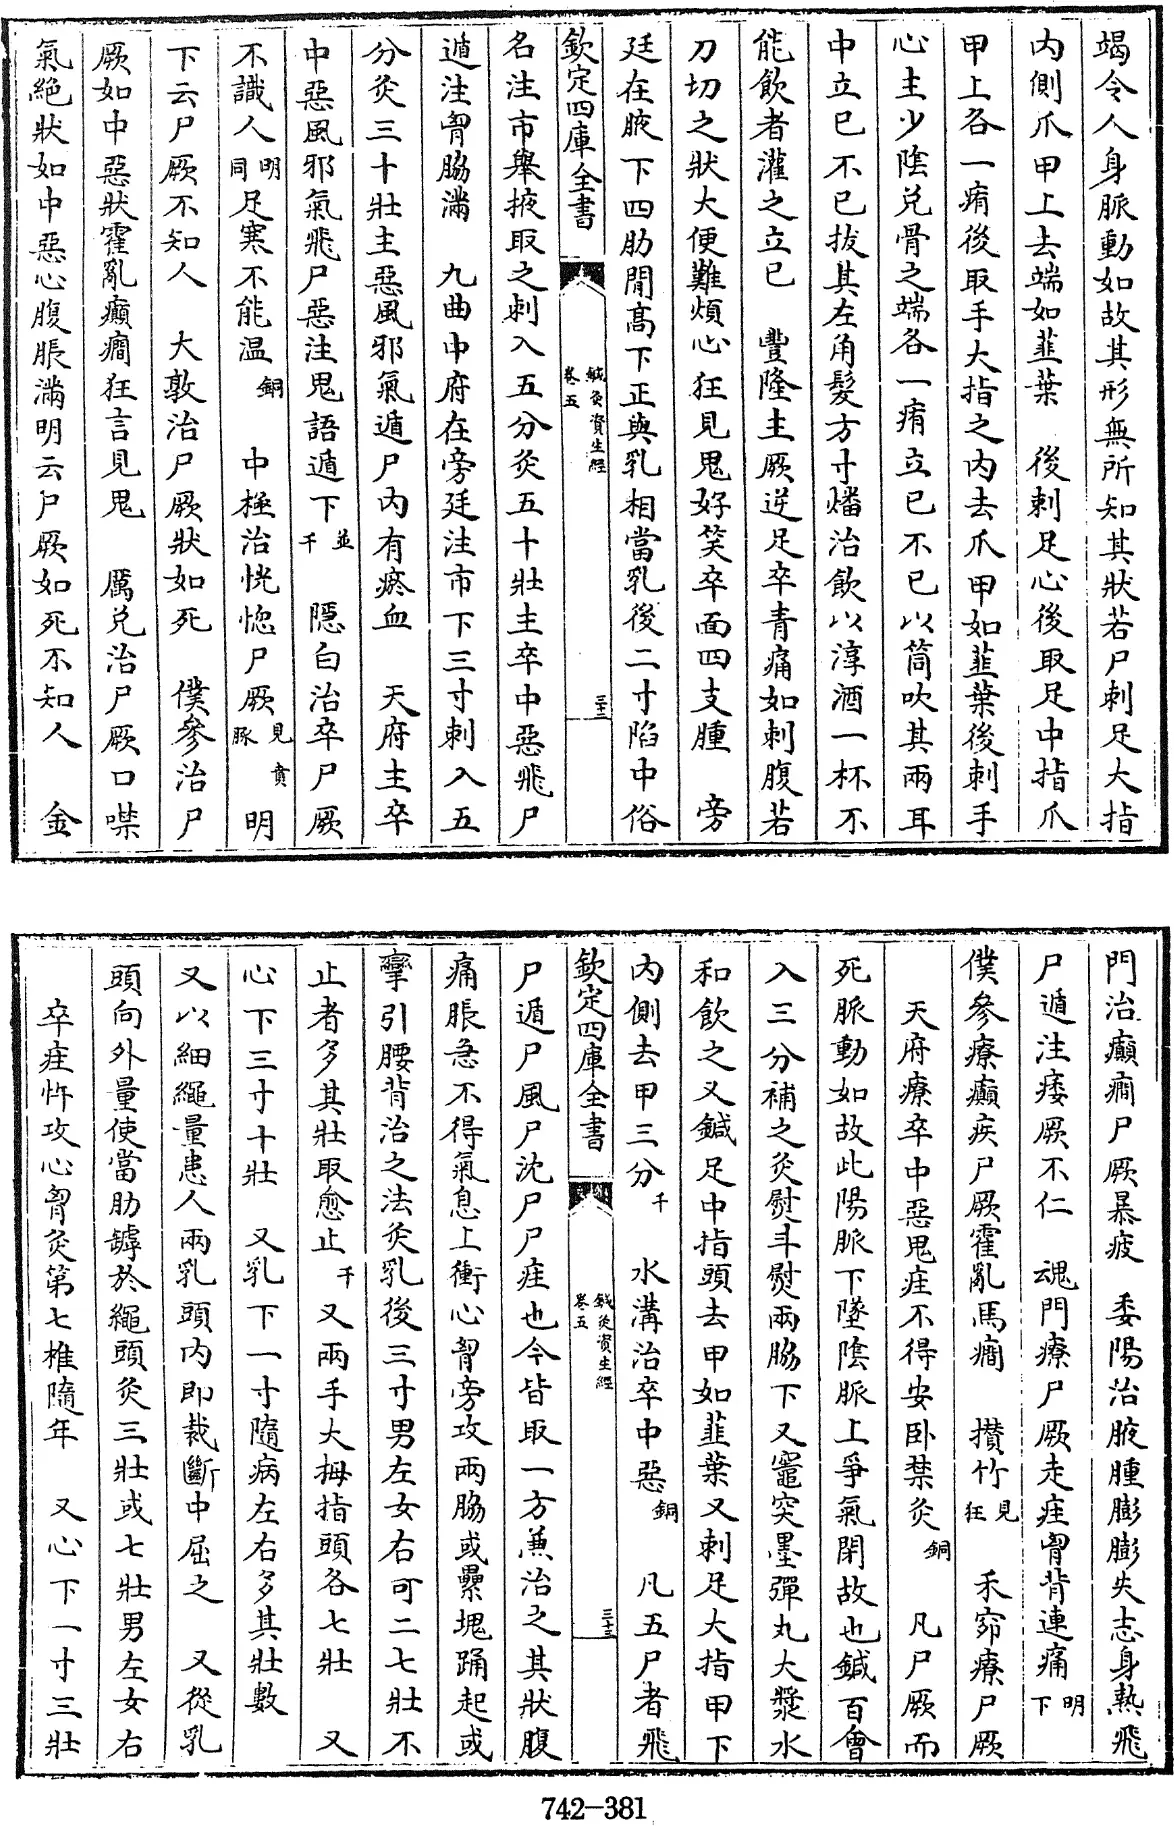 竭令人身脈動如故其形無所知其狀若尸刺足大指
内側爪甲上去端如韮葉　後刺足心後取足中指爪
甲上各一痏後取手大指之内去爪甲如韮葉後刺手
心主少陰兑骨之端各一痏立已不已以筒吹其兩耳
中立已不已拔其左角髮方寸燔治飲以淳酒一杯不
能飲者灌之立已　豐隆主厥逆足卒青痛如刺腹若
刀切之狀大便難煩心狂見鬼好笑卒面四支腫　旁
廷在腋下四肋間髙下正與乳相當乳後二寸陷中俗
欽定四庫全書　鍼灸資生經卷五　三十二
名注市舉掖取之刺入五分灸五十壯主卒中惡飛尸
遁注胷脇滿　九曲中府在旁廷注市下三寸刺入五
分灸三十壯主惡風邪氣遁尸内有瘀血　天府主卒
中惡風邪氣飛尸惡注鬼語遁下並千　隠白治卒尸厥
不識人明同足寒不能温銅　中極治恍惚尸厥見賁豚　明
下云尸厥不知人　大敦治尸厥狀如死　僕參治尸
厥如中惡狀霍亂癲癇狂言見鬼　厲兑治尸厥口噤
氣絶狀如中惡心腹脹滿明云尸厥如死不知人　金
門治癲癇尸厥暴疲　委陽治腋腫膨膨失志身熱飛
尸遁注痿厥不仁　魂門療尸厥走疰胷背連痛明下
僕參療癲疾尸厥霍亂馬癇　攅竹見狂　禾窌療尸厥
天府療卒中惡鬼疰不得安卧禁灸銅　凡尸厥而
死脈動如故此陽脈下墜陰脈上爭氣閉故也鍼百會
入三分補之灸熨斗熨兩脇下又竈突墨彈丸大漿水
和飲之又鍼足中指頭去甲如韮葉又刺足大指甲下
内側去甲三分千　水溝治卒中惡銅　凡五尸者飛
欽定四庫全書　鍼灸資生經卷五　三十三
尸遁尸風尸沈尸尸疰也今皆取一方兼治之其狀腹
痛脹急不得氣息上衝心胷旁攻兩脇或纍塊踊起或
攣引腰背治之法灸乳後三寸男左女右可二七壯不
止者多其壯取愈止千　又兩手大拇指頭各七壯　又
心下三寸十壯　又乳下一寸隨病左右多其壯數
又以細繩量患人兩乳頭内即裁斷中屈之　又從乳
頭向外量使當肋罅於繩頭灸三壯或七壯男左女右
卒疰忤攻心胷灸第七椎隨年　又心下一寸三壯
742-381